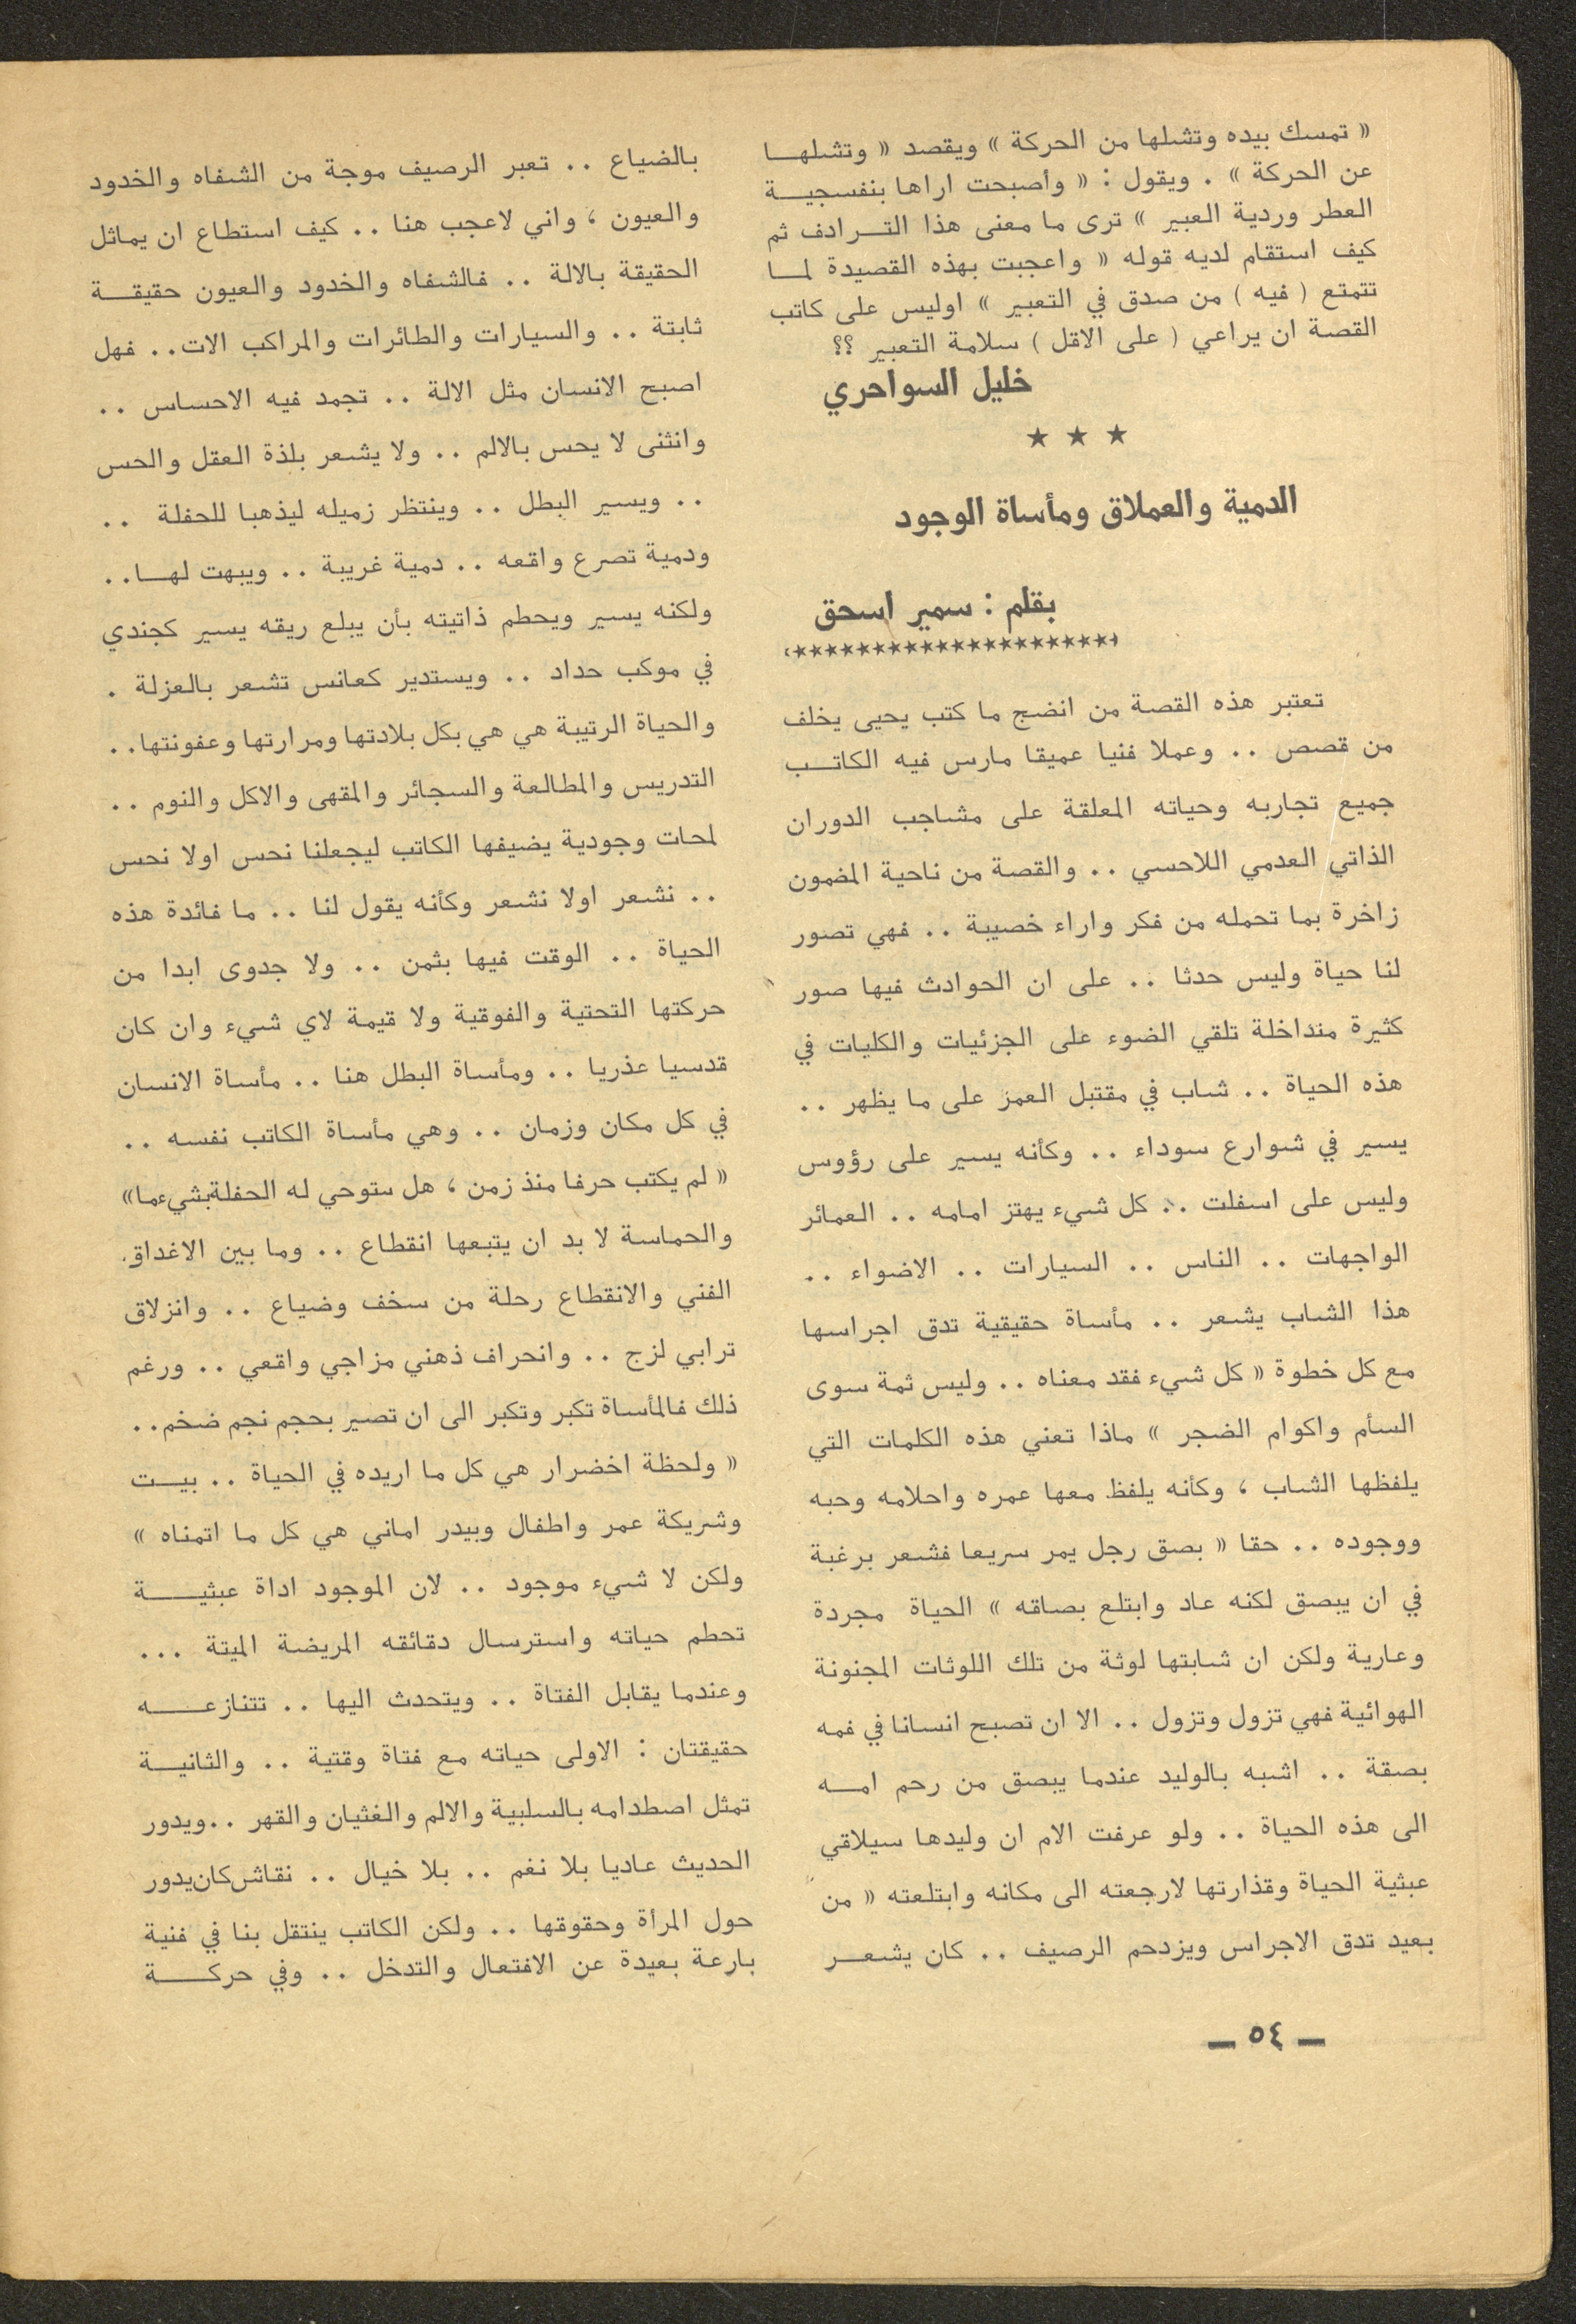 « تمسك بيده وتشلها من الحركة » ويقصد « وتشلهــا
عن الحركة » . ويقول : « وأصبحت اراها بنفسجيــة
العطر وردية العبير » ترى ما معنى هذا التــرادف ثم
كيف استقام لديه قوله « واعجبت بهذه القصيدة لمــا
تتمتع ( فيه ) من صدق في التعبير » اوليس على كاتب
القصة ان يراعي ( على الاقل ) سلامة التعبير ؟؟
خليل السواحري
★ ★ ★
الدمية والعملاق ومأساة الوجود
بقلم : سمير اسحق
تعتبر هذه القصة من انضج ما كتب يحيى يخلف
من قصص .. وعملا فنيا عميقا مارس فيه الكاتــب
جميع تجاربه وحياته المعلقة على مشاجب الدوران
الذاتي العدمي اللاحسي .. والقصة من ناحية المضمون
زاخرة بما تحمله من فكر واراء خصيبة .. فهي تصور
لنا حياة وليس حدثا .. على ان الحوادث فيها صور
كثيرة متداخلة تلقي الضوء على الجزئيات والكليات في
هذه الحياة .. شاب في مقتبل العمز على ما يظهر ..
يسير في شوارع سوداء .. وكأنه يسير على رؤوس
وليس على اسفلت .. كل شيء يهتز امامه .. العمائر
الواجهات .. الناس .. السيارات .. الاضواء ..
هذا الشاب يشعر .. مأساة حقيقية تدق اجراسها
مع كل خطوة « كل شيء فقد معناه .. وليس ثمة سوى
السأم واكوام الضجر » ماذا تعني هذه الكلمات التي
يلفظها الشاب ، وكأنه يلفظ معها عمره واحلامه وحبه
ووجوده .. حقا « بصق رجل يمر سريعا فشعر برغبة
في ان يبصق لكنه عاد وابتلع بصاقه » الحياة مجردة
وعارية ولكن ان شابتها لوثة من تلك اللوثات المجنونة
الهوائية فهي تزول وتزول .. الا ان تصبح انسانا في فمه
بصقة .. اشبه بالوليد عندما يبصق من رحم امــه
الى هذه الحياة .. ولو عرفت الام ان وليدها سيلاقي
عبثية الحياة وقذارتها لارجعته الى مكانه وابتلعته « من
بعيد تدق الاجراس ويزدحم الرصيف .. كان يشعــر
بالضياع .. تعبر الرصيف موجة من الشفاه والخدود
والعيون ، واني لاعجب هنا .. كيف استطاع ان يماثل
الحقيقة بالالة .. فالشفاه والخدود والعيون حقيقــة
ثابتة .. والسيارات والطائرات والمراكب الات.. فهل
اصبح الانسان مثل الالة .. تجمد فيه الاحساس ..
وانثنى لا يحس بالالم .. ولا يشعر بلذة العقل والحس
.. ويسير البطل .. وينتظر زميله ليذهبا للحفلة ..
ودمية تصرع واقعه .. دمية غريبة .. ويبهت لهــا..
ولكنه يسير ويحطم ذاتيته بأن يبلع ريقه يسير كجندي
في موكب حداد .. ويستدير كعانس تشعر بالعزلة .
والحياة الرتيبة هي هي بكل بلادتها ومرارتها وعفونتها..
التدريس والمطالعة والسجائر والمقهى والاكل والنوم ..
لمحات وجودية يضيفها الكاتب ليجعلنا نحس اولا نحس
.. نشعر اولا نشعر وكأنه يقول لنا .. ما فائدة هذه
الحياة .. الوقت فيها بثمن .. ولا جدوى ابدا من
حركتها التحتية والفوقية ولا قيمة لاي شيء وان كان
قدسيا عذريا .. ومأساة البطل هنا .. مأساة الانسان
في كل مكان وزمان .. وهي مأساة الكاتب نفسه ..
« لم يكتب حرفا منذ زمن ، هل ستوحي له الحفلة بشيء ما»
والحماسة لا بد ان يتبعها انقطاع .. وما بين الاغداق
الفني والانقطاع رحلة من سخف وضياع .. وانزلاق
ترابي لزج .. وانحراف ذهني مزاجي واقعي .. ورغم
ذلك فالمأساة تكبر وتكبر الى ان تصير بحجم نجم ضخم..
« ولحظة اخضرار هي كل ما اريده في الحياة .. بيــت
وشريكة عمر واطفال وبيدر اماني هي كل ما اتمناه »
ولكن لا شيء موجود .. لان الموجود اداة عبثيــة
تحطم حياته واسترسال دقائقه المريضة الميتة ...
وعندما يقابل الفتاة .. ويتحدث اليها .. تتنازعــه
حقيقتان : الاولى حياته مع فتاة وقتية .. والثانيــة
تمثل اصطدامه بالسلبية والالم والغثيان والقهر ..ويدور
الحديث عاديا بلا نغم .. بلا خيال .. نقاش كان يدور
حول المرأة وحقوقها .. ولكن الكاتب ينتقل بنا في فنية
بارعة بعيدة عن الافتعال والتدخل .. وفي حركــة
ــ ٥٤ ــ